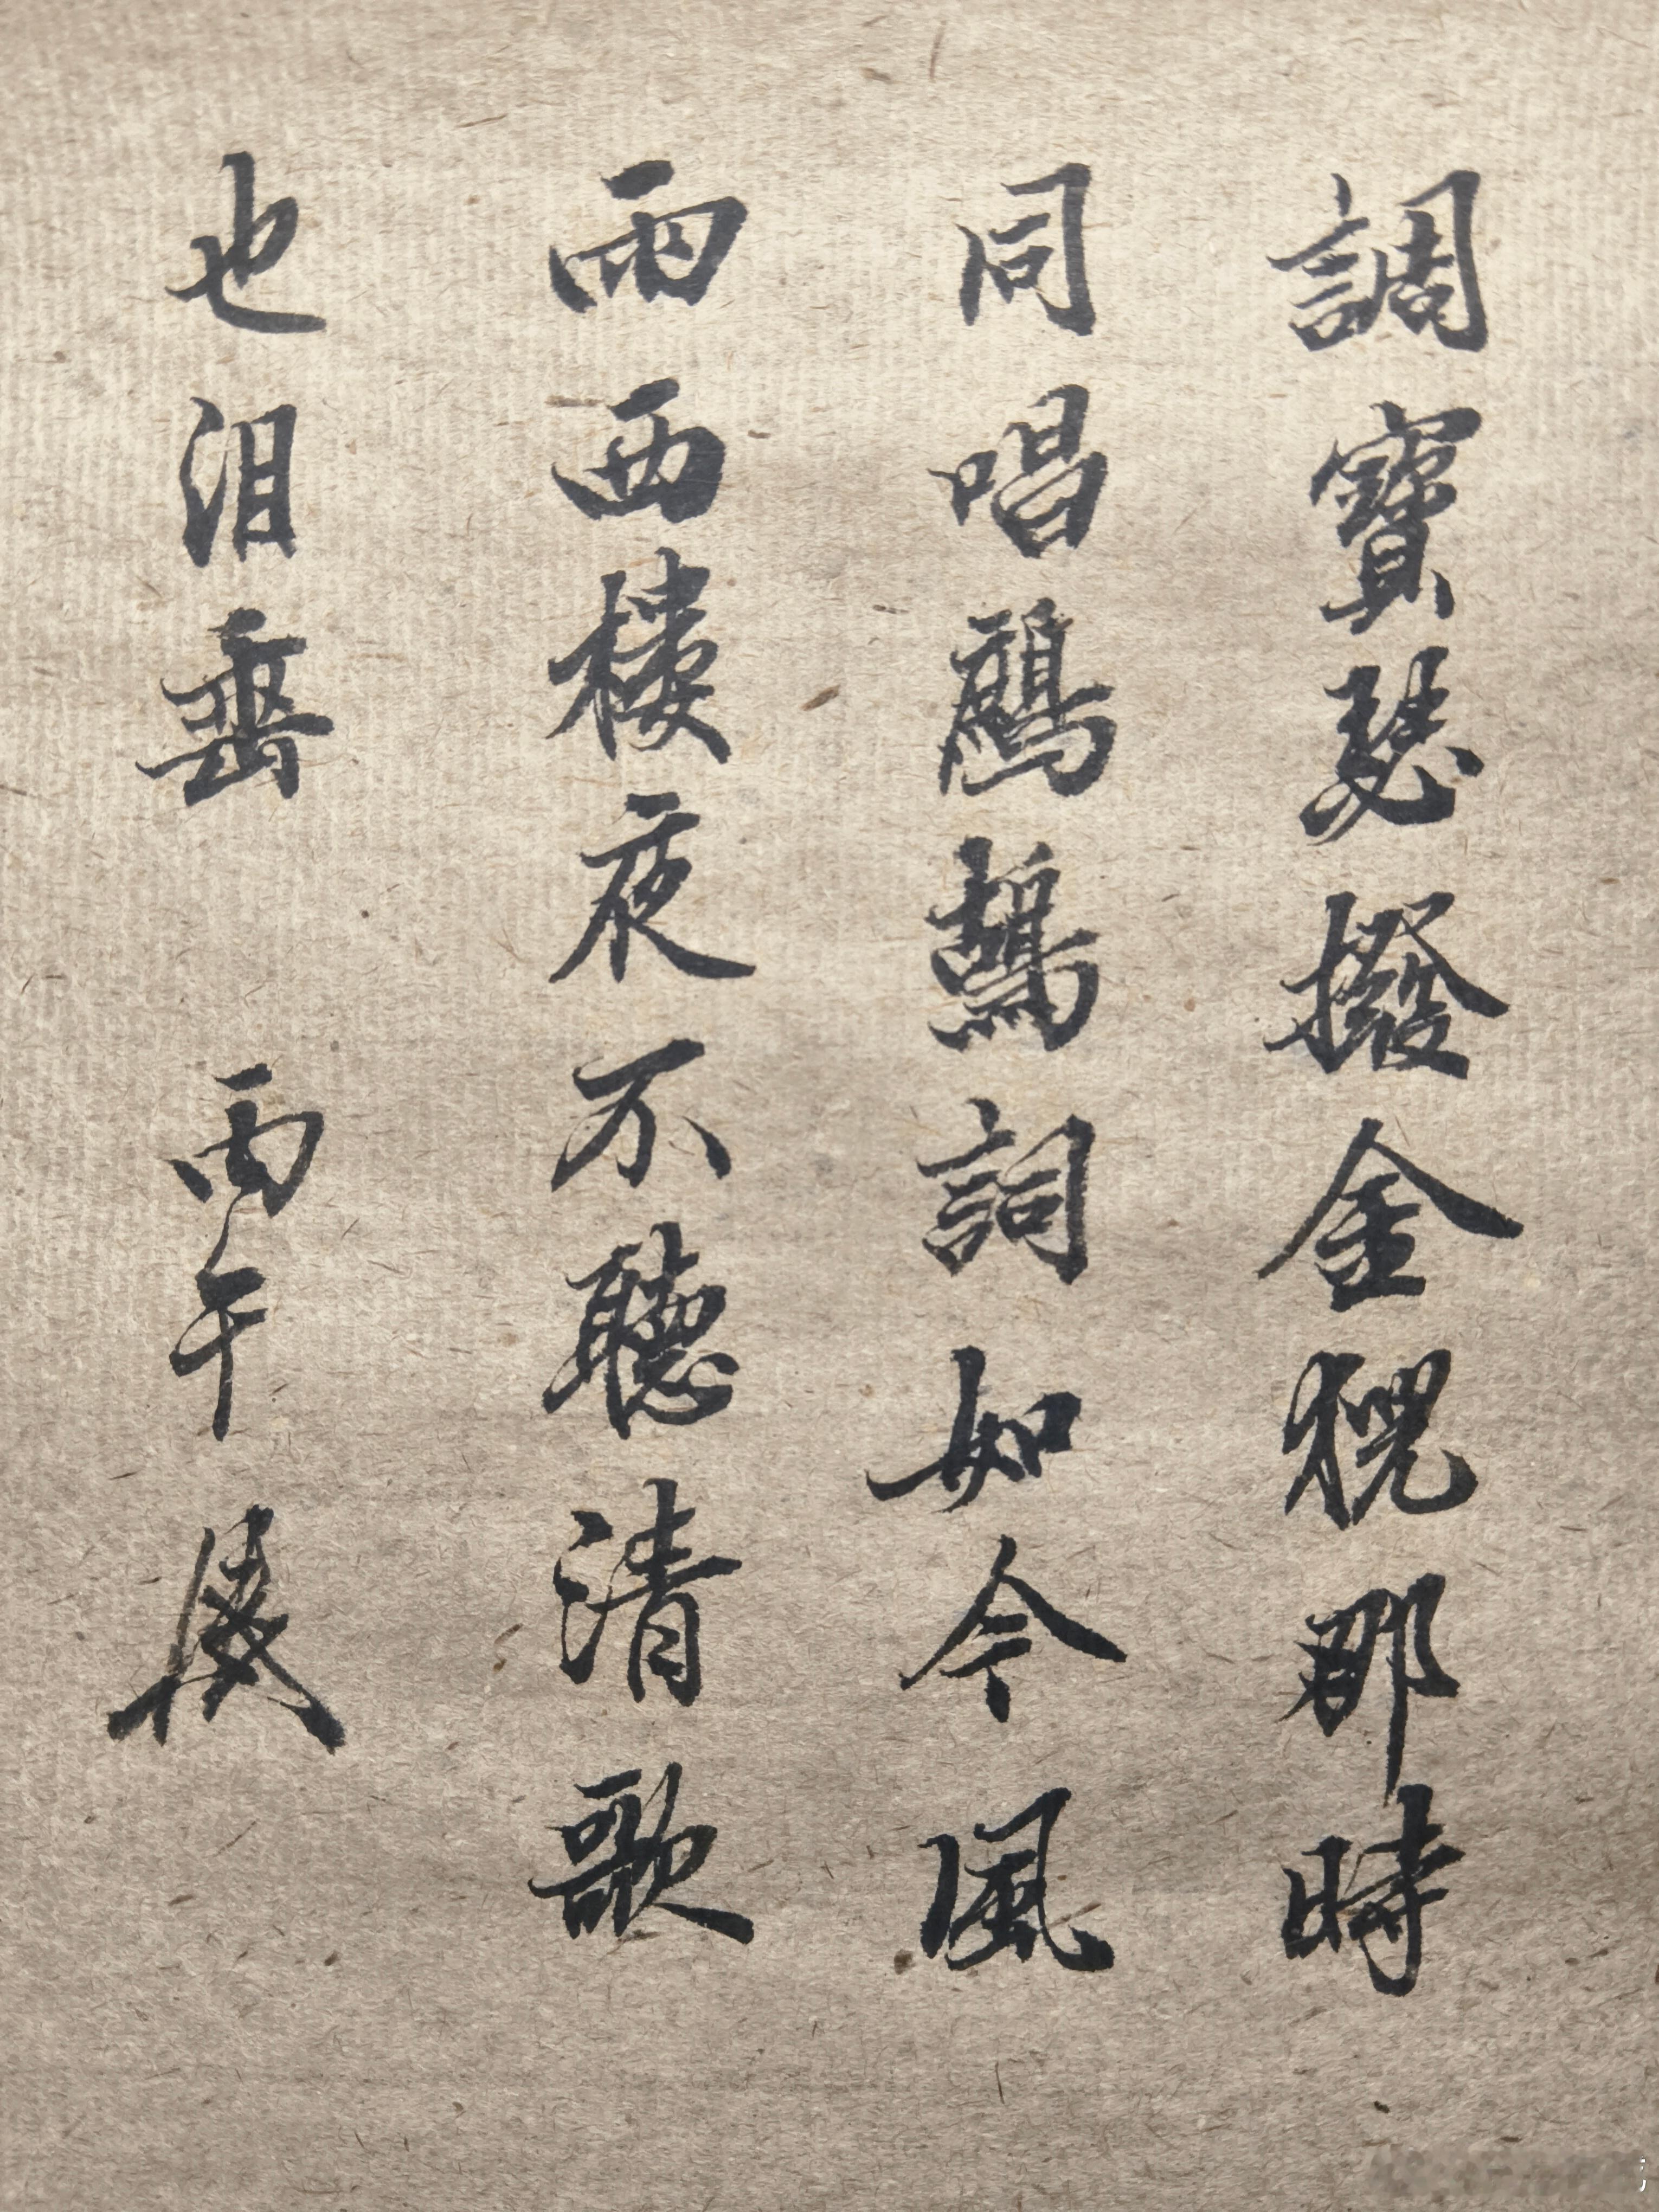 調寶瑟撥金猊那時
同唱鷓鴣詞如今風
雨西樓夜不聽清歌
也淚垂 丙午